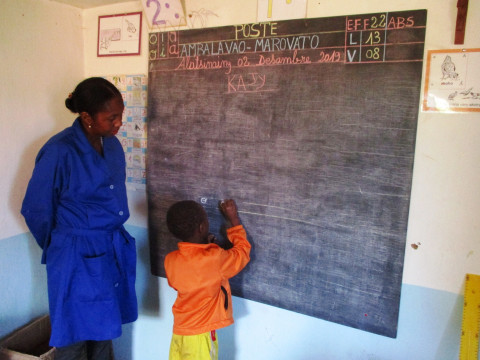 POSTE
AMBALAVAO-MAROVATO
Alatsinainy 02 Desambra 2013
EFF 22 ABS
L 13
V 08
KAJY